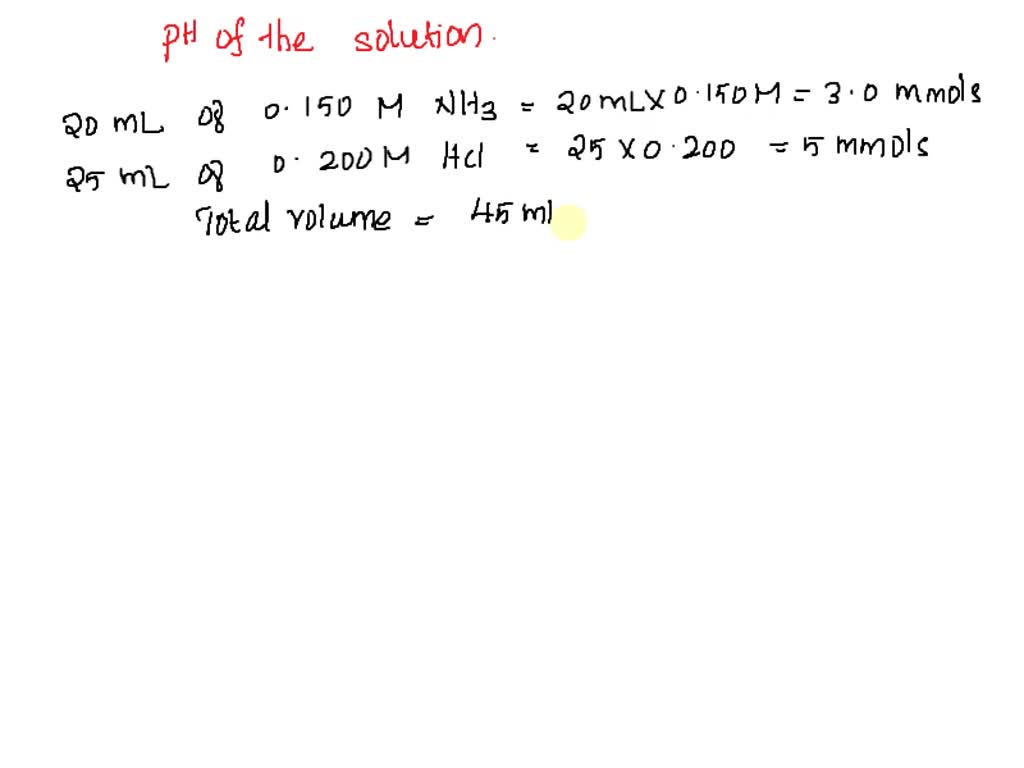 pH of the solution.
20 mL of 0.150 M NH3 = 20 mL X 0.150 M = 3.0 mmols
25 mL of 0.200 M HCl = 25 X 0.200 = 5 mmols
Total volume = 45 ml